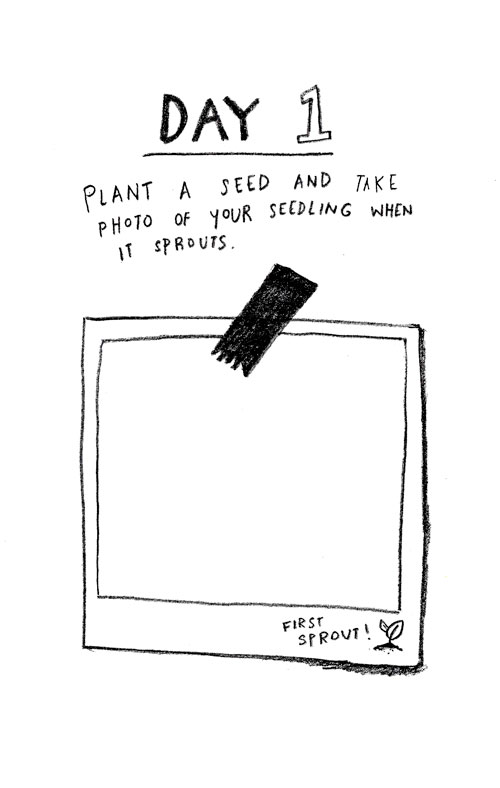 DAY 1
PLANT A SEED AND TAKE
PHOTO OF YOUR SEEDLING WHEN
IT SPROUTS.
FIRST
SPROUT!